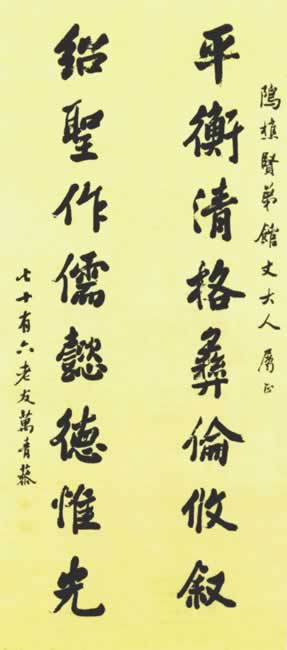 隖樵賢弟館丈大人屬正
平衡清格彝倫攸叙
紹聖作儒懿德惟光
七十有六老友萬青藜